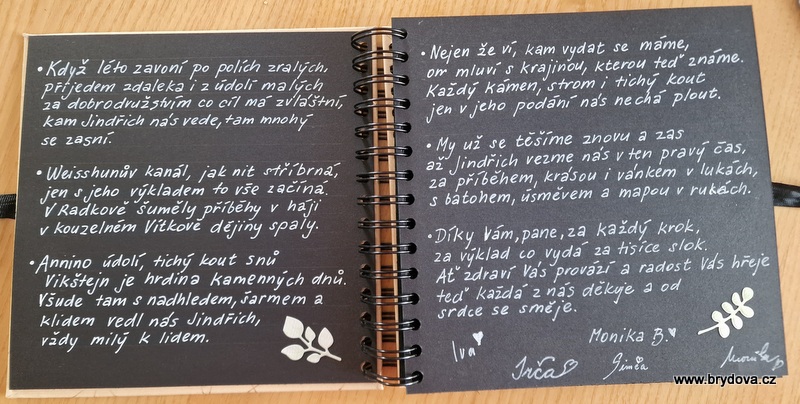 • Když léto zavoní po polích zralých,
přijedem zdaleka i z údolí malých
za dobrodružstvím co cíl má zvláštní,
kam Jindřich nás vede, tam mnohý
se zasní.
• Weisshunův kanál, jak nit stříbrná,
jen s jeho výkladem to vše začíná
V Radkově šuměly příběhy v háji
v kouzelném Vítkově dějiny spaly.
• Annino údolí, tichý kout snů
Vikštejn je hrdina kamenných dnů.
Všude tam s nadhledem, šarmem a
klidem vedl nás Jindřich,
vždy milý k lidem.
• Nejen že ví, kam vydat se máme,
on mluví s krajinou, kterou teď známe.
Každý kámen, strom i tichý kout
jen v jeho podání nás nechá plout.
• My už se těšíme znovu a zas
až Jindřich vezme nás v ten pravý čas,
za příběhem, krásou i vánkem v lukách,
s batohem, úsměvem a mapou v rukách.
• Díky Vám, pane, za každý krok,
za výklad co vydá za tisíce slok.
Ať zdraví Vás provází a radost Vás hřeje
teď každá z nás děkuje a od
srdce se směje.
Monika B.
Iva
Jrča
Simča
www.brydova.cz